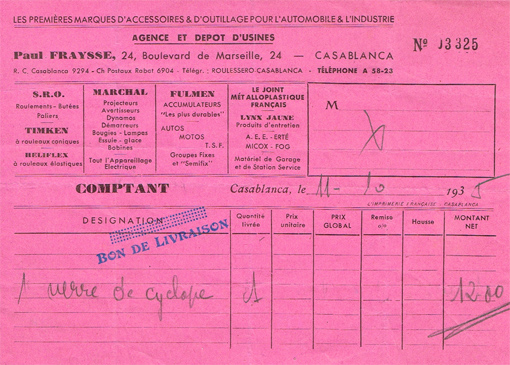 LES PREMIÈRES MARQUES D'ACCESSOIRES & D'OUTILLAGE POUR L'AUTOMOBILE & L'INDUSTRIE
AGENCE ET DEPOT D'USINES
Nº 03325
Paul FRAYSSE, 24, Boulevard de Marseille, 24 — CASABLANCA
R. C. Casablanca 9294 - Ch Postaux Rabat 6904 - Télégr.: ROULESSERO-CASABLANCA - TÉLÉPHONE A 58-23
S.R.O.
Roulements - Butées
Paliers
TIMKEN
à rouleaux coniques
HELIFLEX
à rouleaux élastiques
MARCHAL
Projecteurs
Avertisseurs
Dynamos
Démarreurs
Bougies - Lampes
Essuie - glace
Bobines
Tout l'Appareillage
Electrique
FULMEN
ACCUMULATEURS
"Les plus durables"
AUTOS
MOTOS
T. S. F.
Groupes Fixes
et "Semifix"
LE JOINT
MÉTALLOPLASTIQUE
FRANÇAIS
LYNX JAUNE
Produits d'entretien
A. E. E. - ERTÉ
MICOX - FOG
Matériel de Garage
et de Station Service
M
X
COMPTANT
Casablanca, le 11-10 1935
L'IMPRIMERIE FRANÇAISE - CASABLANCA
DESIGNATION
Quantité
livrée
Prix
unitaire
PRIX
GLOBAL
Remise
o/o
Hausse
MONTANT
NET
BON DE LIVRAISON
1 verre de cyclope 1 12 00